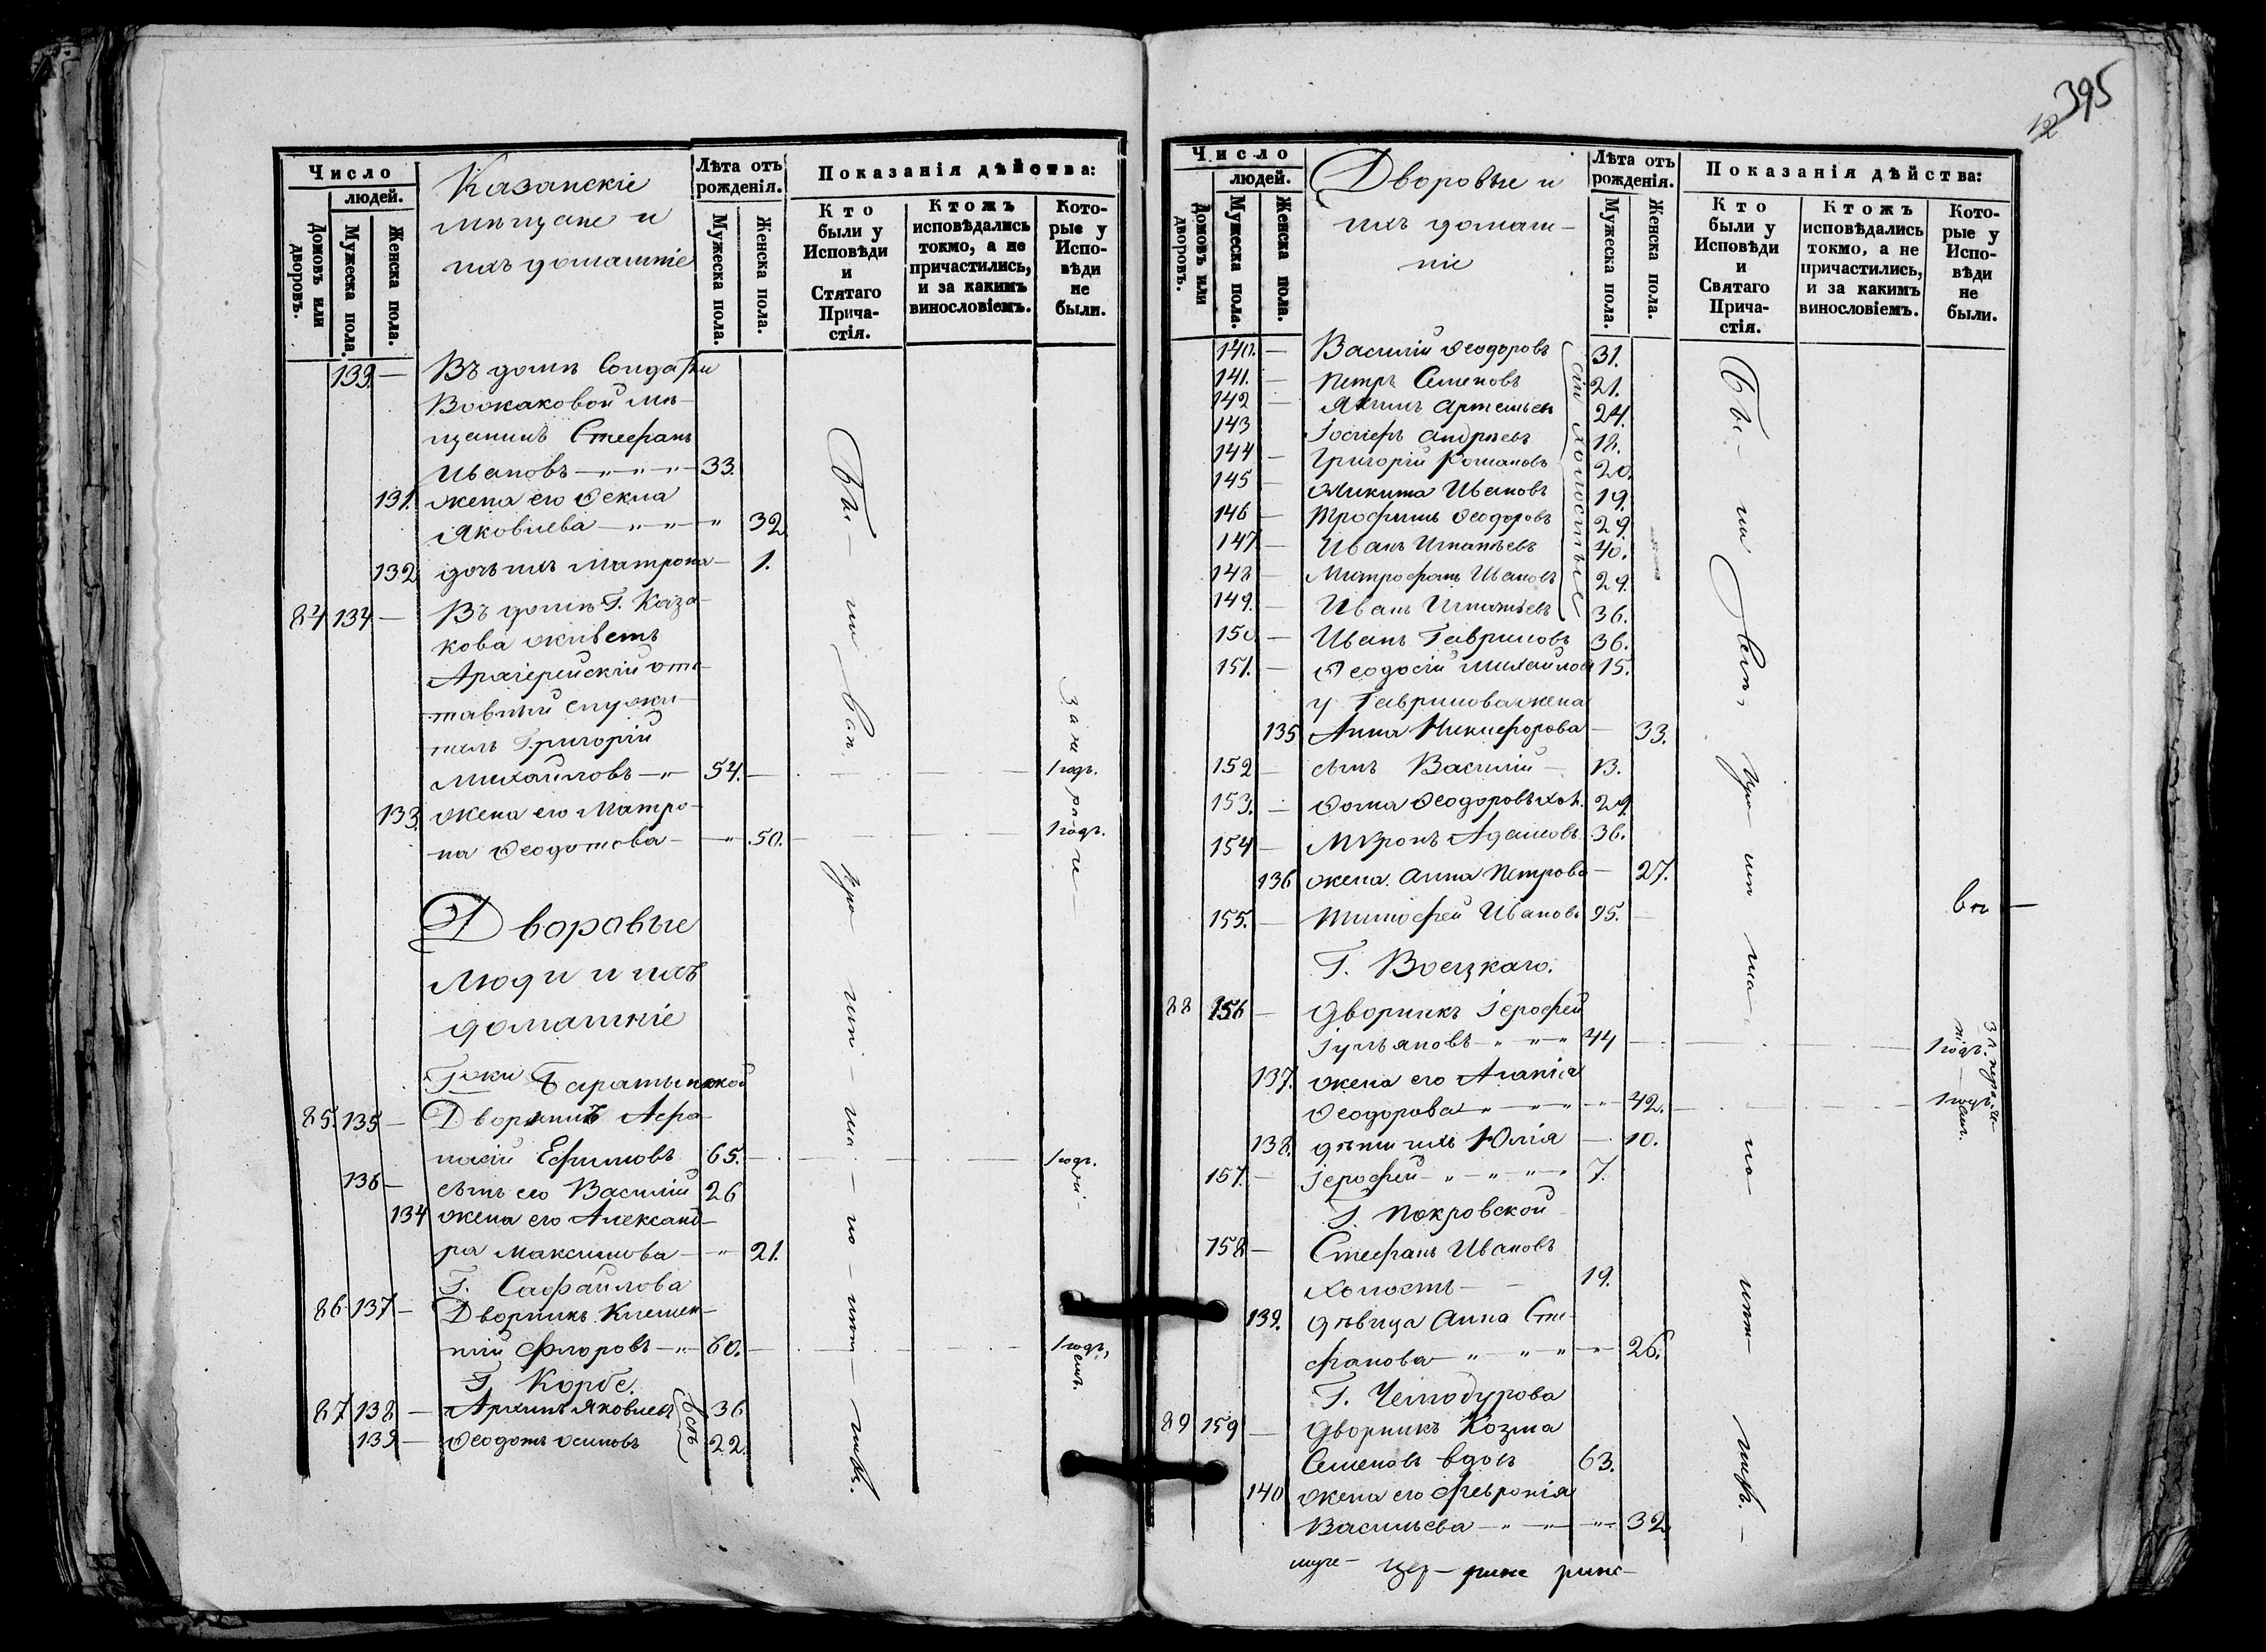 395
12
Число
людей.
Домовъ или дворовъ.
Мужеска пола.
Женска пола.
Казанскіе
мѣщане и
ихъ домашніе
Лѣта отъ рожденія.
Мужеска пола.
Женска пола.
Показанія дѣйства:
Кто были у Исповѣди и Стятаго Прича-стія.
Ктожъ исповѣдались токмо, а не причастились, и за какимъ винословіемъ.
Кото-рые у Испо-вѣди не были.
133. — Въ домѣ Солдатки
мѣ-
щанинъ Стефанъ
Ивановъ — „ — „ — 33.
131. жена его Ѳекла
Яковлева — „ — „ 32
132 дочь ихъ Матрона — 1.
84 134 — Въ домѣ Г. Каза-
кова живетъ
Архіерейскій отс-
тавный служи-
тель Григорій
Михайловъ — „ 54. — 1 годъ.
133. жена его Матро-
на Ѳеодотова — „ 50. — 1 годъ.
Дворовые
люди и ихъ
домашніе
Г-жи Баратынской
85. 135 — Дворникъ Аѳа-
насій Ефимовъ 65. — 1 годъ.
136 — сынъ его Василій 26
134 жена его Александ-
ра Максимова — „ 21.
Г. Сафайлова
86 137 — Дворникъ Климен-
тій Флоровъ — „ 60. — 1 годъ,
Г. Корбе.
87 138 — Архипъ Яковлевъ 36
139 — Ѳеодотъ Осиповъ 22.
Число
людей.
Домовъ или дворовъ.
Мужеска пола.
Женска пола.
Дворовые и
ихъ домаш-
ніе
Лѣта отъ рожденія.
Мужеска пола.
Женска пола.
Показанія дѣйства:
Кто были у Исповѣди и Святаго Прича-стія.
Ктожъ исповѣдались токмо, а не причастились, и за какимъ винословіемъ.
Кото-рые у Испо-вѣди не были.
140. — Василій Ѳеодоровъ 31.
141. — Петръ Семеновъ 21.
142 — Якимъ Артемьевъ 24.
143 Іосифъ Андреевъ 18.
144 — Григорій Романовъ 20.
145 — Никита Ивановъ 19.
146 — Трофимъ Ѳеодоровъ 29.
147. — Иванъ Игнатьевъ 40.
148 — Митрофанъ Ивановъ 29.
149. — Иванъ Игнатьевъ 36.
сіи холостые
150. — Иванъ Гавриловъ 36.
151. — Ѳеодосій Михайловъ 15.
у Гаврилова жена
135 Анна Никифорова — 33.
152 — сынъ Василій — 13.
153. — Ѳома Ѳеодоровъ хол. 29
154 — Мѵронъ Адамовъ. 36.
136 жена Анна Петрова — 27.
155. — Тимофей Ивановъ 95. —
Г. Воецкаго.
88 156 — Дворникъ Іерофей
Іульяновъ — „ — „ — „ 44 — 1 годъ.
137. жена его Агапіа
Ѳеодорова — „ — „ — „ 42. — 1 годъ.
138. дѣти ихъ Юлія — 10.
157. — Іерофей — „ — „ — „ 7.
Г. Покровской
158 — Стефанъ Ивановъ
холостъ — 19.
139. дѣвица Анна Сте-
фанова — „ — „ — „ 26.
Г. Чемодурова
89 159 — Дворникъ Козма
Семеновъ вдовъ 63.
140 жена его Февронія
Васильева — „ — „ — 32.